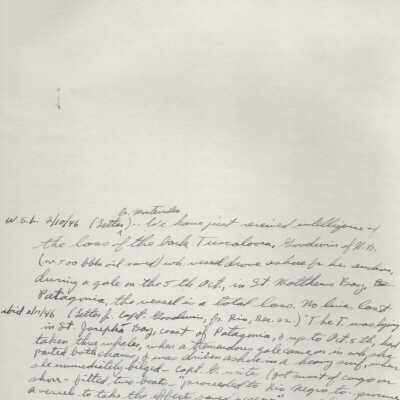 fr. Montevideo
W.S.L. 2/10/46 (Letter) .. We have just received intelligence of
the loss of the bark Tuscaloosa, Goodwin of N.B.
(w. 500 bbls oil said) wh vessel drove ashore fr her anchors,
during a gale on the 5th Oct, in St Matthews Bay,
Patagonia, the vessel is a total loss. No lives lost
ibid (Letter f. Capt. Goodwin, fr Rio, Dec. 22.) "The T. was lying
in St Josephs Bay, coast of Patagonia, & up to Oct 5th, had
taken three whales, when a tremendous gale came on in wh she
parted both chains, & was driven ashore in a strong surf, where
she immediately bilged — Capt. G. write
shore - fitted two boats - "proceeded to Rio Negro to procure
a vessel to take the effects saved